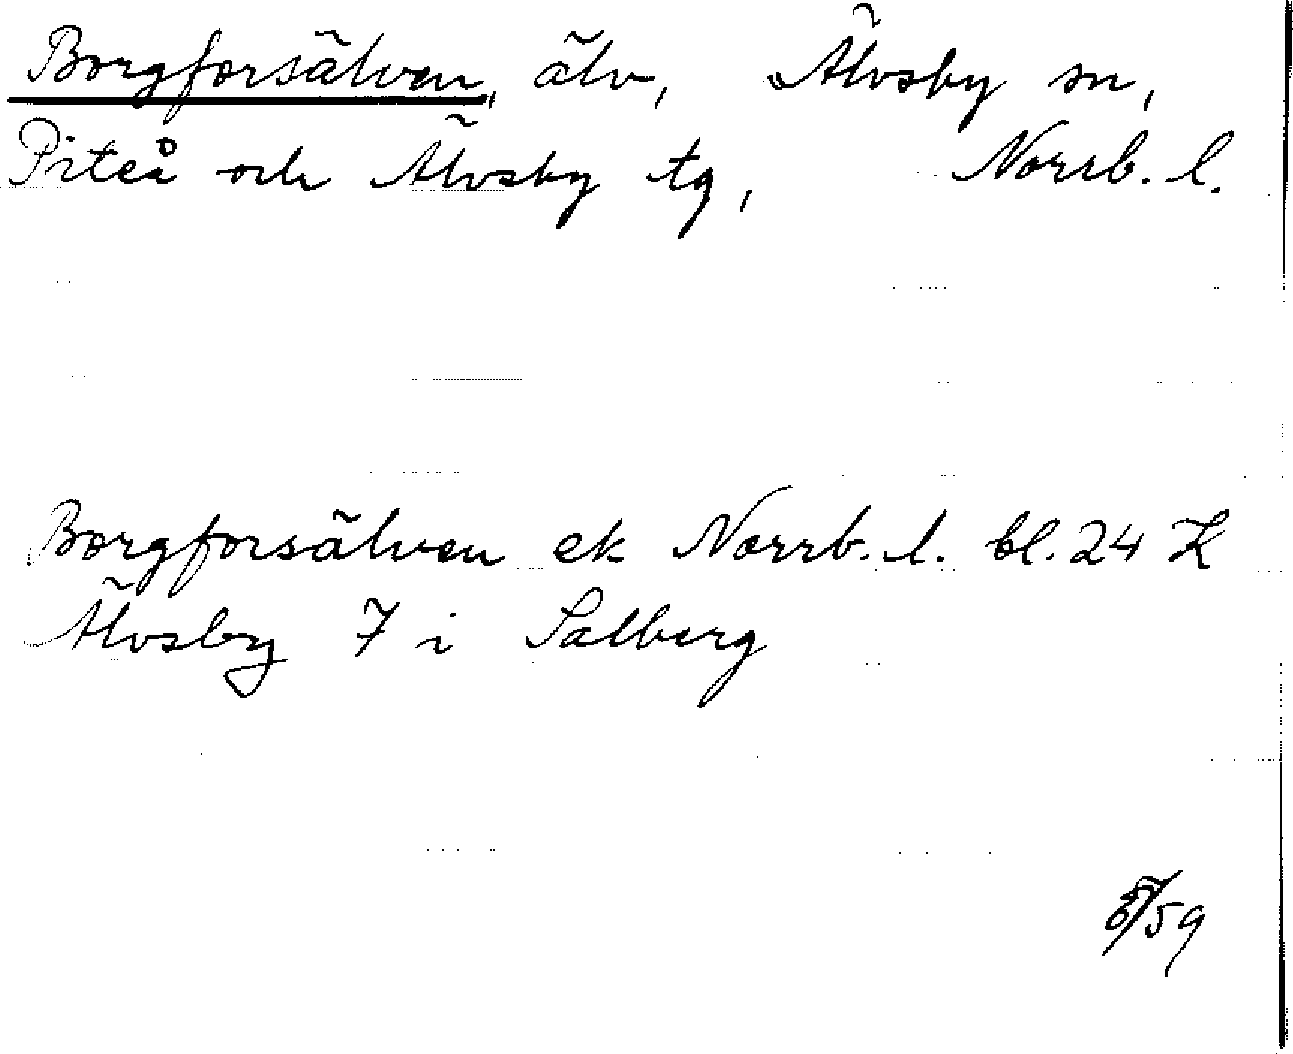 Borgforsälven, älv, Älvsby sn,
Piteå och Älvsby tg, Norrb. l.
Borgforsälven ek Norrb. l. bl. 24 K
Älvsby 7 i Salberg
/59